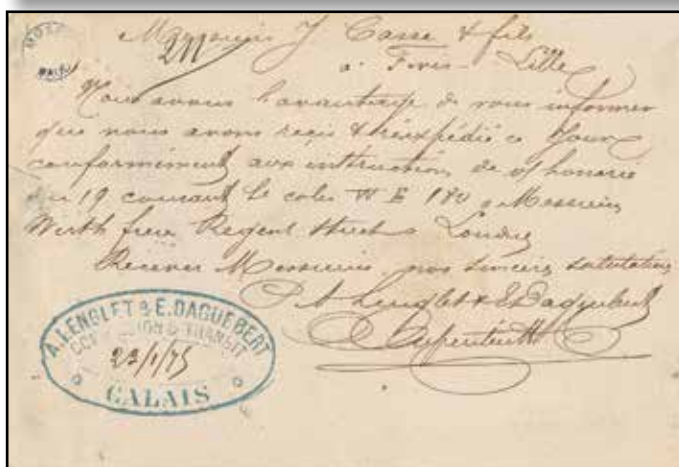 Messieurs J. Casse & fils
à Fives-Lille
Nous avons l'avantage de vous informer
que nous avons reçu & réexpédié ce Jour
conformément aux instructions de v/ honorée
du 19 courant le colis W E 180 a Messieurs
Werth frères Regent Street Londres
Recevez Messieurs nos sincères salutations
A Lenglet & E Daguebert
A. LENGLET & E. DAGUEBERT
COMMISSION & TRANSIT
23/1/75
CALAIS